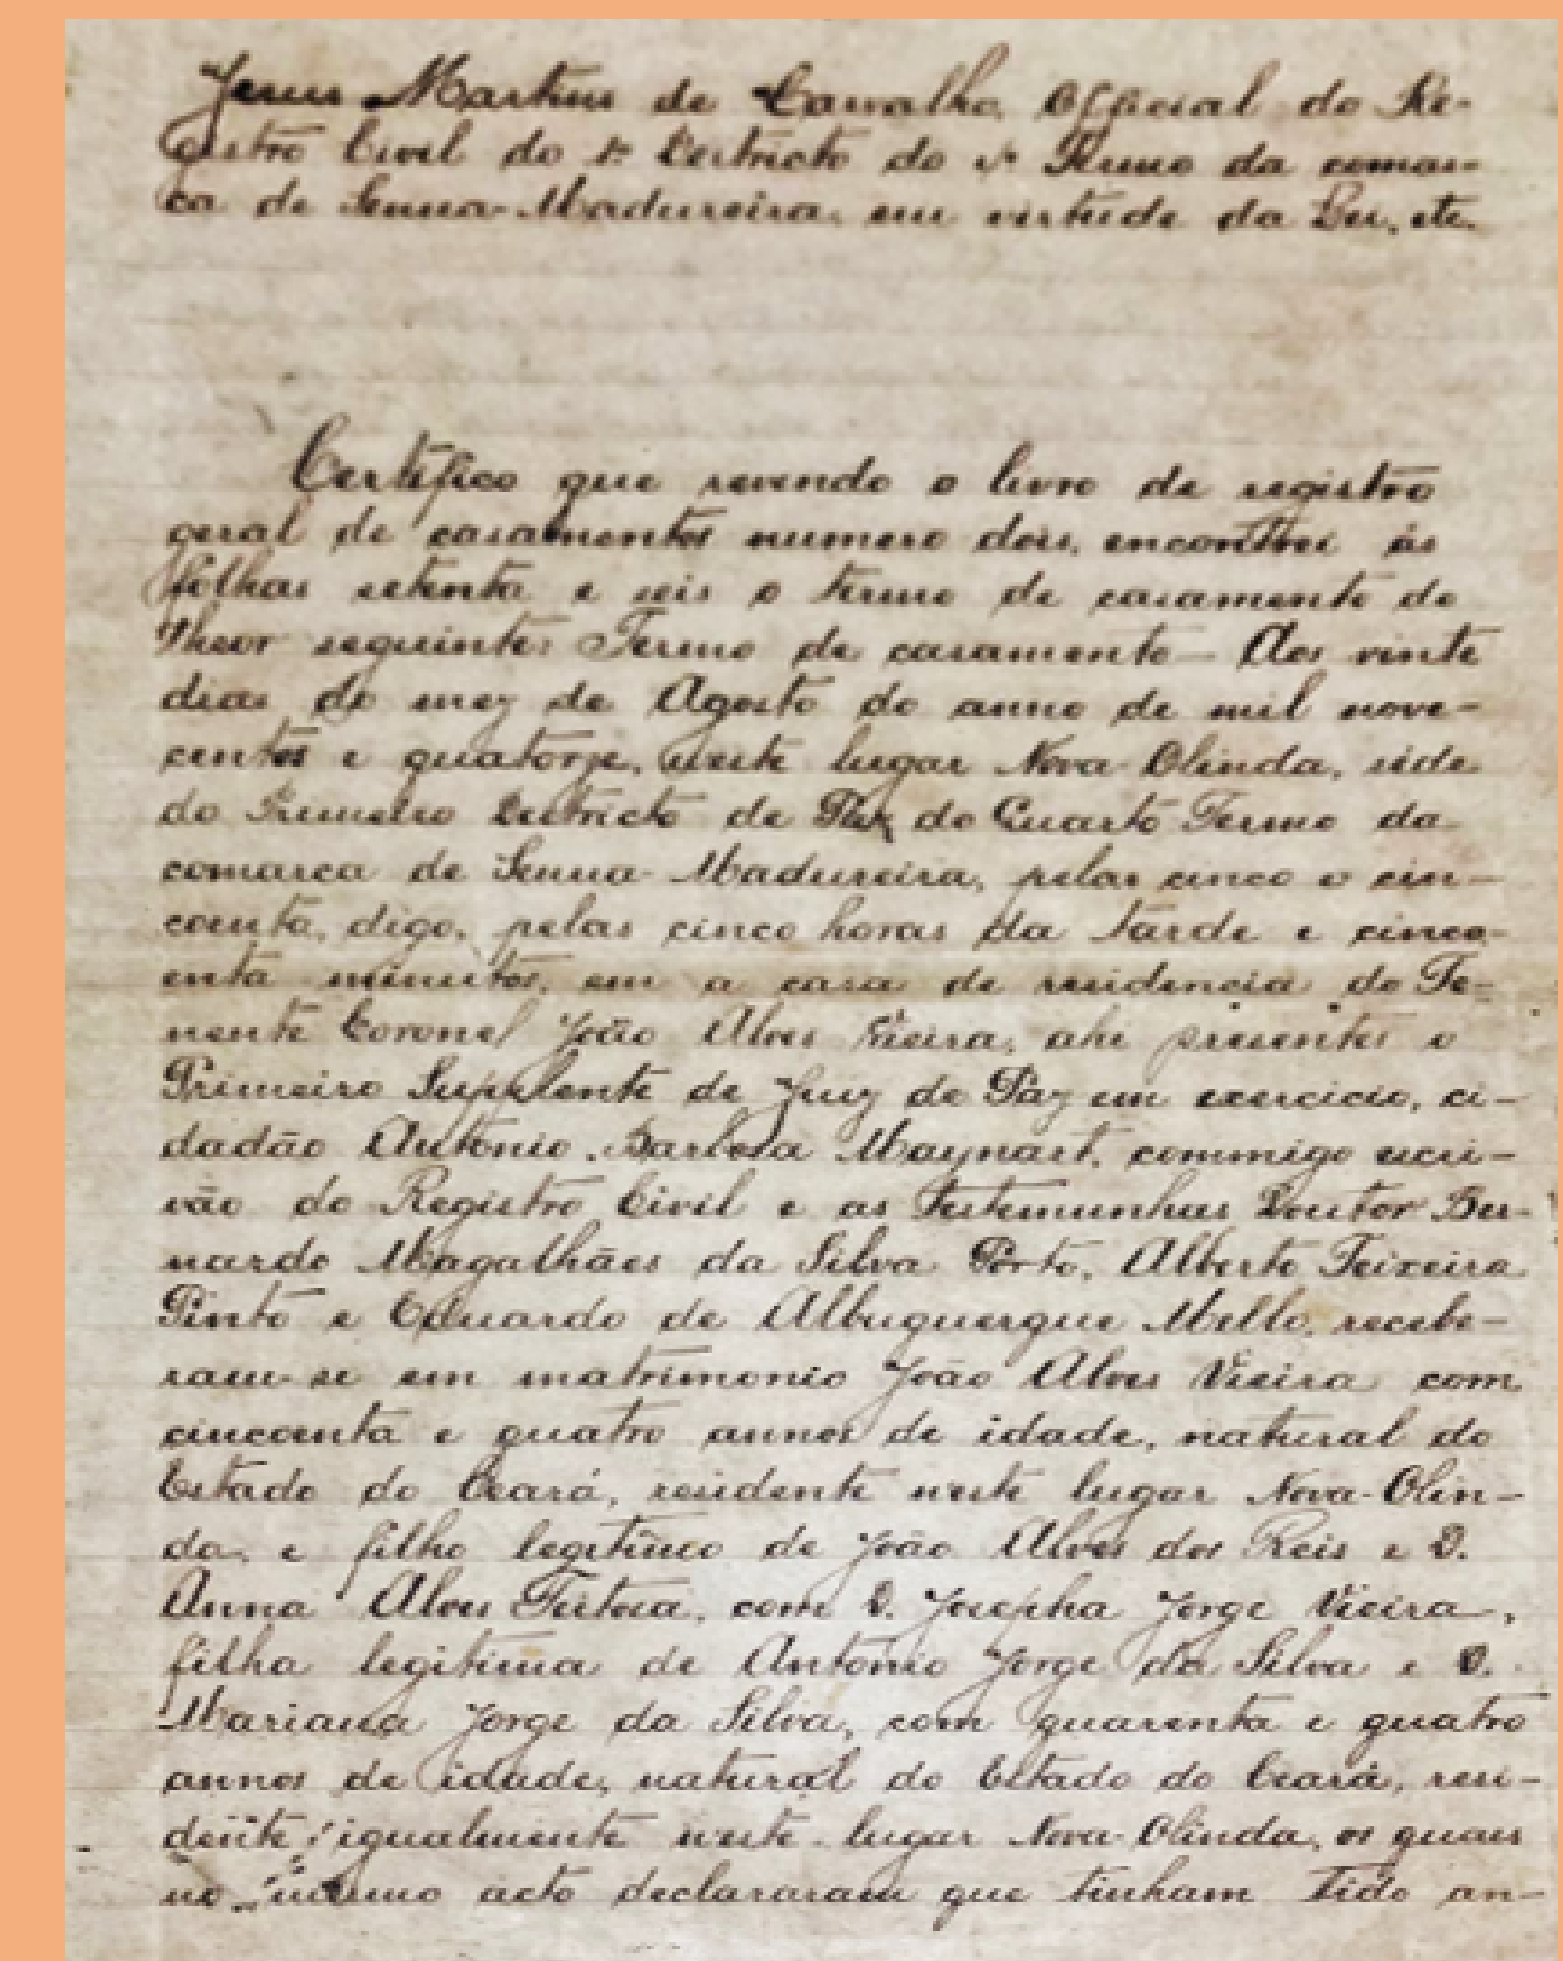 Jesus Martins de Carvalho, Official do Re-
gistro Civil do 1º Districto do 4º Termo da comar-
ca de Senna-Madureira, em virtude da Lei, etc.
Certifico que revendo o livro de registro
geral de casamentos numero dois, encontrei ás
folhas setenta e seis o termo de casamento do
theor seguinte: Termo de casamento — Aos vinte
dias do mez de Agosto do anno de mil nove-
centos e quatorze, neste lugar Nova-Olinda, séde
do Primeiro Districto de Paz do Quarto Termo da
comarca de Senna-Madureira, pelas cinco e cin-
coenta, digo, pelas cinco horas da tarde e cinco-
enta minutos, em a casa de residencia do Te-
nente Coronel João Alves Vieira, ahi presentes o
Primeiro Supplente de Juiz de Paz em exercicio, ci-
dadão Antonio Barbosa Maynart, commigo escri-
vão do Registro Civil e as testemunhas Doutor Ber-
nardo Magalhães da Silva Porto, Alberto Teixeira
Pinto e Eduardo de Albuquerque Mello, recebe-
ram-se em matrimonio João Alves Vieira com
cincoenta e quatro annos de idade, natural do
Estado do Ceará, residente neste lugar Nova-Olin-
da, e filho legitimo de João Alves dos Reis e D.
Anna Alves Feitosa, com D. Josepha Jorge Vieira,
filha legitima de Antonio Jorge da Silva e D.
Mariana Jorge da Silva, com quarenta e quatro
annos de idade, natural do Estado do Ceará, resi-
dente igualmente neste lugar Nova-Olinda, os quaes
no mesmo acto declararam que tinham tido an-